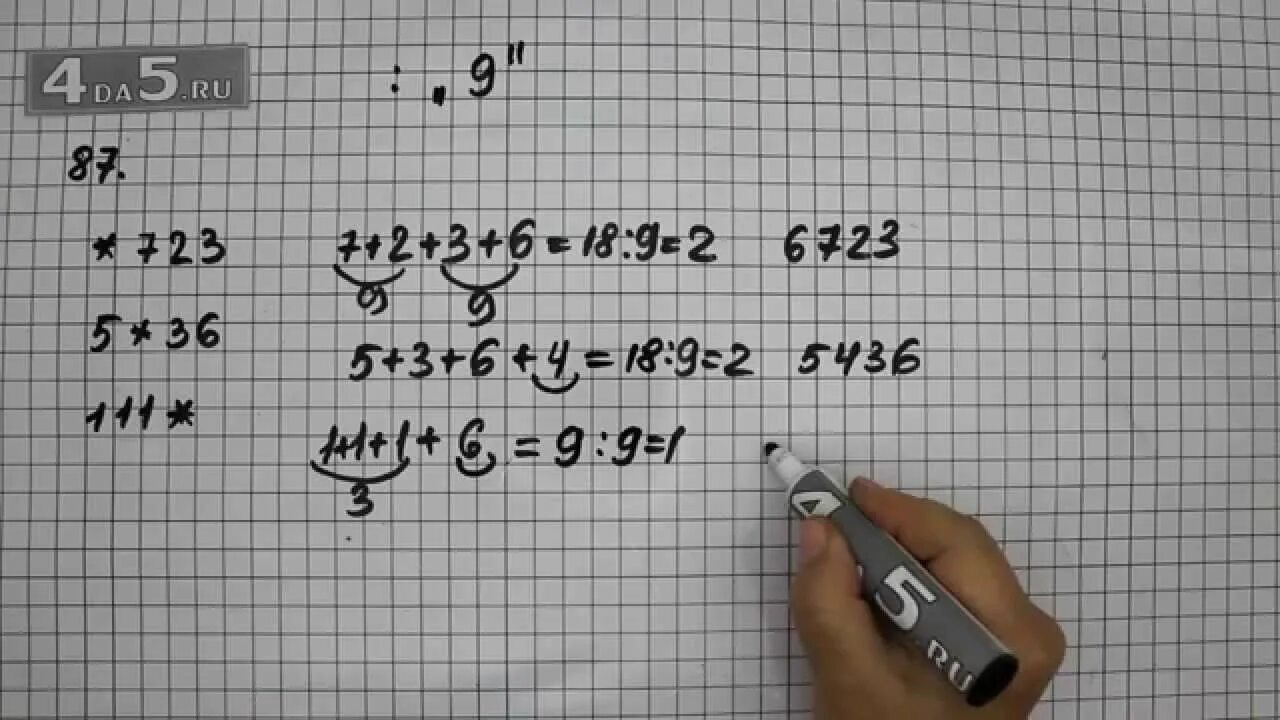 4DA5.RU
: „9"
87.
*723 7+2+3+6=18:9=2 6723
9 9
5*36 5+3+6+4=18:9=2 5436
111* 1+1+1+6=9:9=1
3
5
.RU